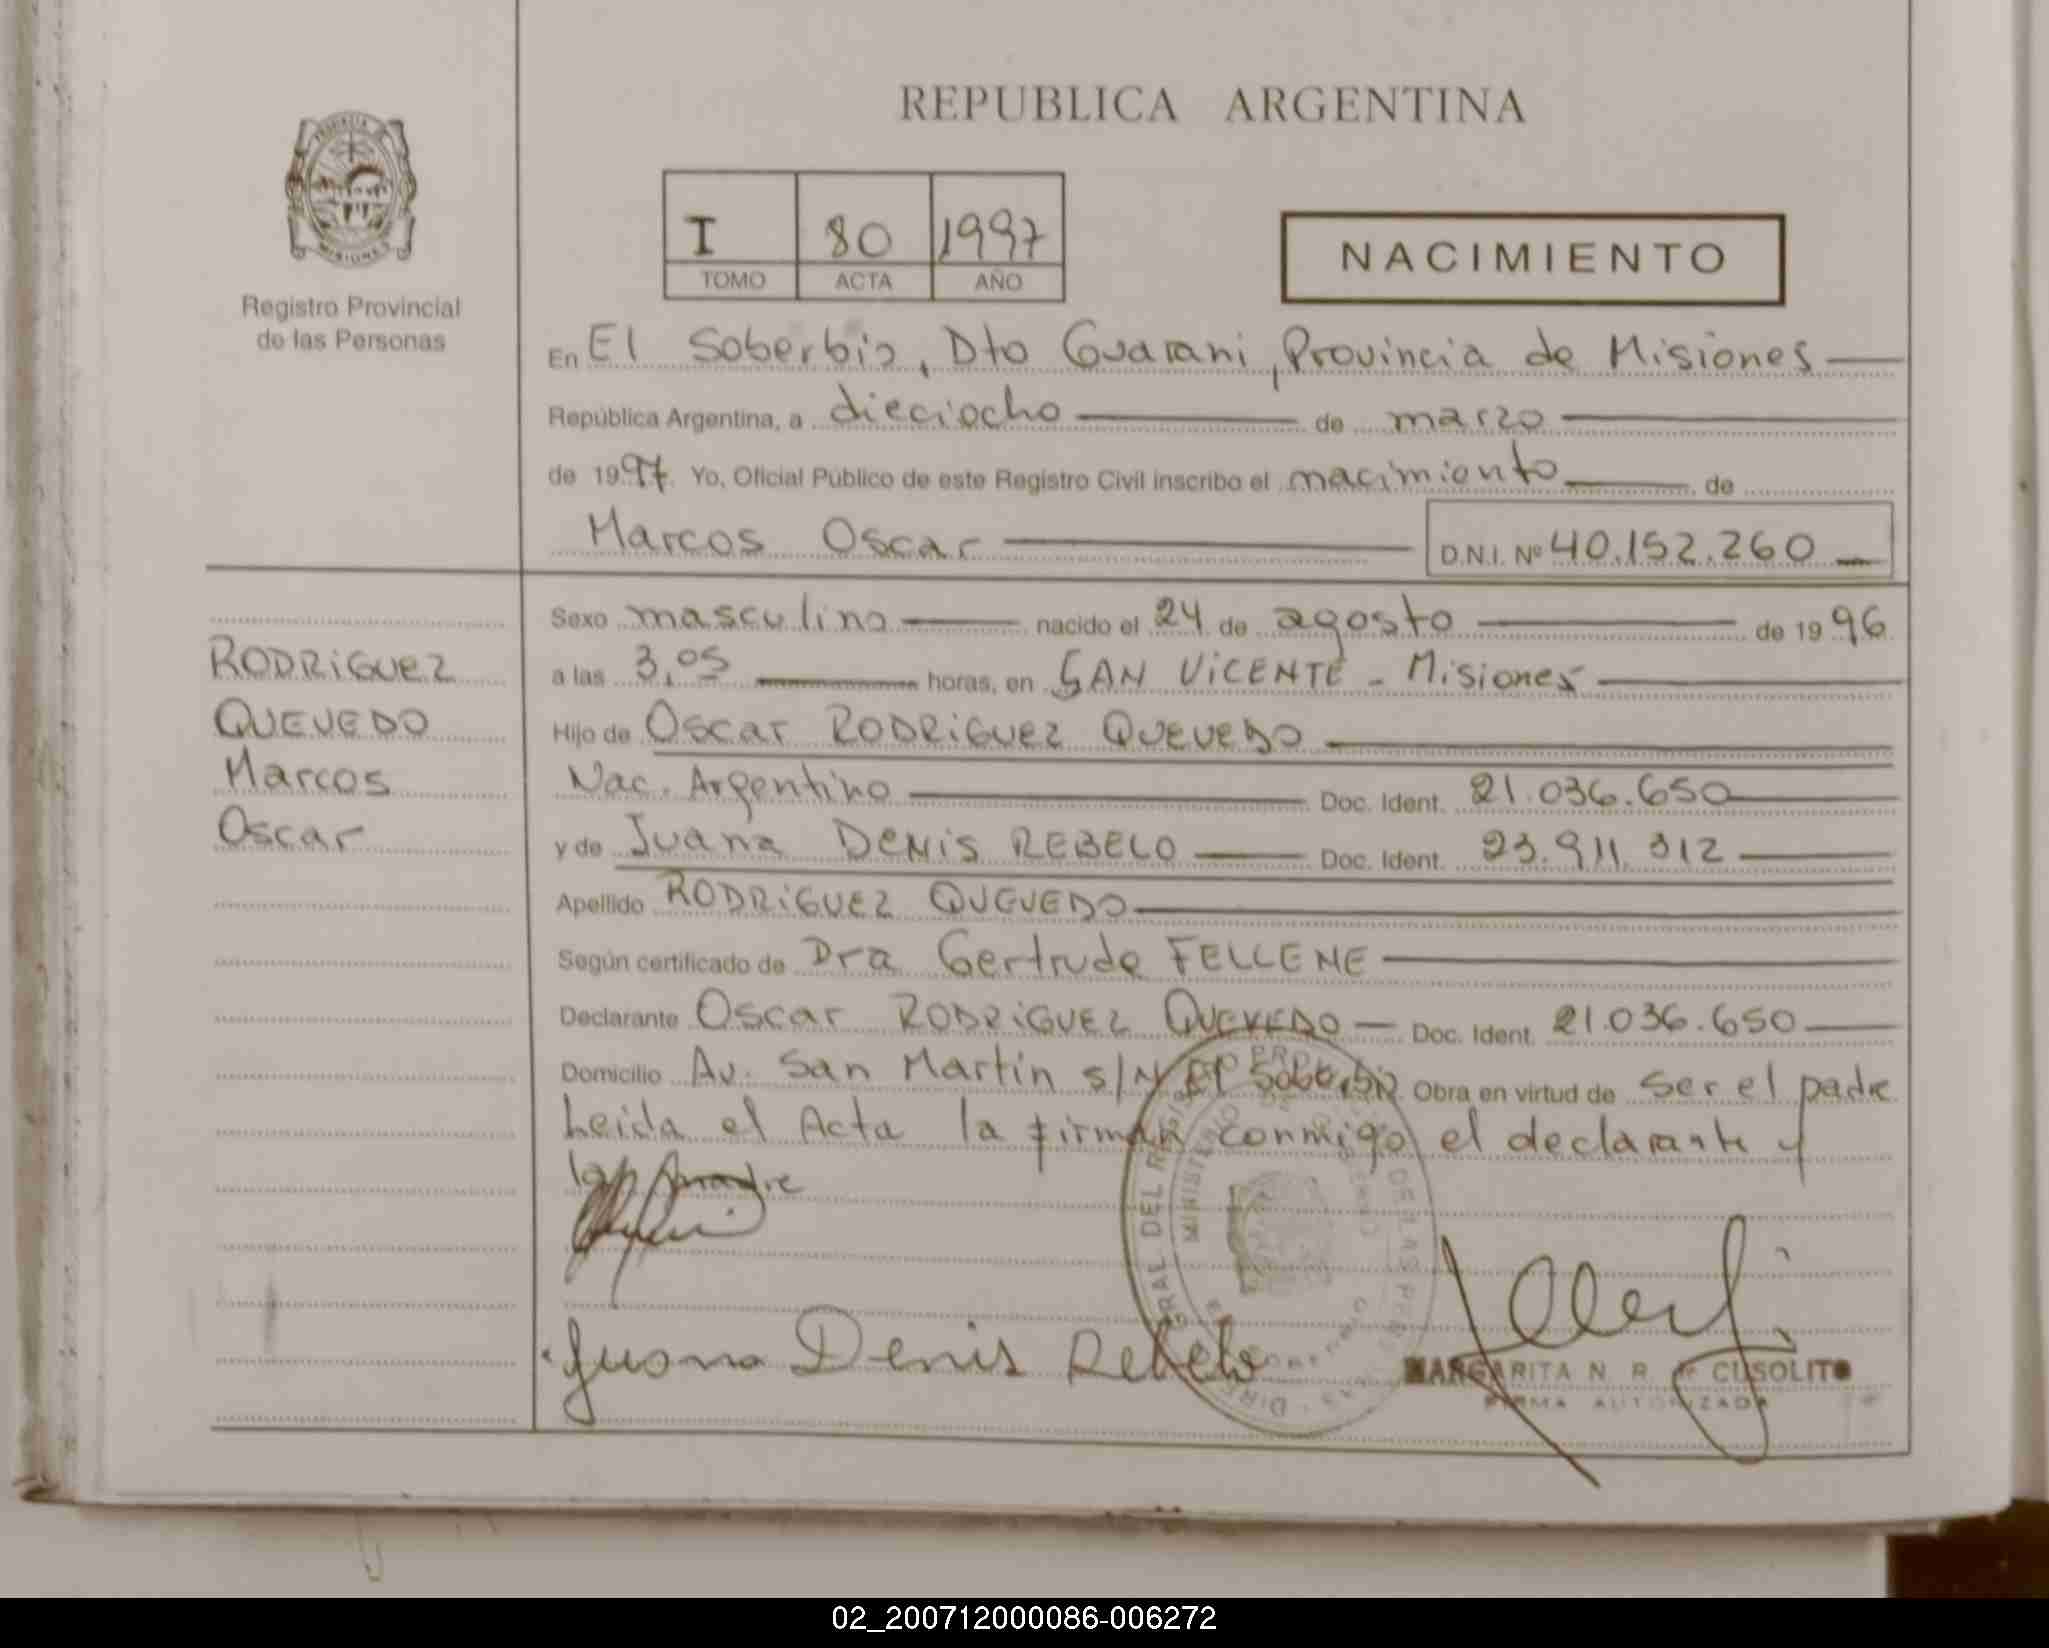 REPUBLICA ARGENTINA
I 80 1997
TOMO ACTA AÑO
NACIMIENTO
Registro Provincial
de las Personas
En El Soberbio, Dto Guarani, Provincia de Misiones
República Argentina, a dieciocho de marzo
de 1997. Yo, Oficial Público de este Registro Civil inscribo el nacimiento de
Marcos Oscar D.N.I. Nº 40.152.260
RODRIGUEZ
QUEVEDO
Marcos
Oscar
Sexo masculino nacido el 24 de agosto de 1996
a las 3,05 horas, en SAN VICENTE - Misiones
Hijo de Oscar RODRIGUEZ QUEVEDO
Nac. Argentino Doc. Ident. 21.036.650
y de Juana DENIS REBELO Doc. Ident. 23.911.312
Apellido RODRIGUEZ QUEVEDO
Según certificado de Dra Gertrude FELLENE
Declarante Oscar RODRIGUEZ QUEVEDO Doc. Ident. 21.036.650
Domicilio Av. San Martin s/N El Soberbio Obra en virtud de ser el padre
Leida el Acta la firman conmigo el declarante y
la madre
Juana Denis Rebelo
MARGARITA N. R. de CUSOLITO
FIRMA AUTORIZADA
02_200712000086-006272